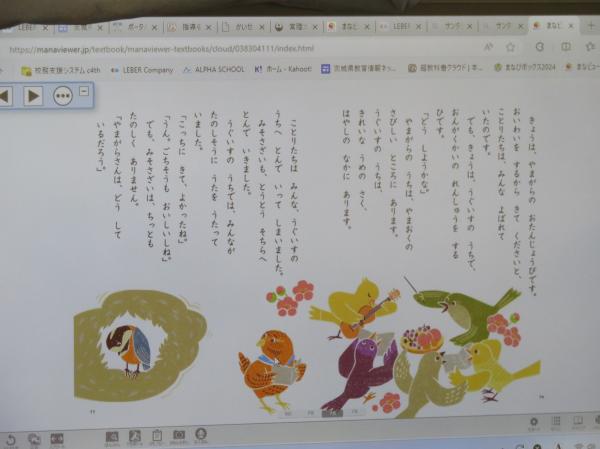 https://manaviewer.jp/textbook/manaviewer-textbooks/cloud/038304111/index.html
校務支援システム c4th
LEBER Company
ALPHA SCHOOL
ホーム - Kahoot!
茨城県教育情報ネッ...
超教科書クラウド | 本...
まなびボックス2024
きょうは、やまがらの おたんじょうびです。
おいわいを するから きて くださいと、
ことりたちは、みんな よばれて
いたのです。
でも、きょうは、うぐいすの うちで、
おんがくかいの れんしゅうを する
ひです。
「どう しようかな。」
やまがらの うちは、やまおくの
さびしい ところに あります。
うぐいすの うちは、
きれいな うめの さく、
はやしの なかに あります。
ことりたちは みんな、うぐいすの
うちへ とんで いって しまいました。
みそさざいも、とうとう そちらへ
とんで いきました。
うぐいすの うちでは、みんなが
たのしそうに うたを うたって
いました。
「こっちに きて、よかったね。」
「うん。ごちそうも おいしいしね。」
でも、みそさざいは、ちっとも
たのしく ありません。
「やまがらさんは、どう して
いるだろう。」